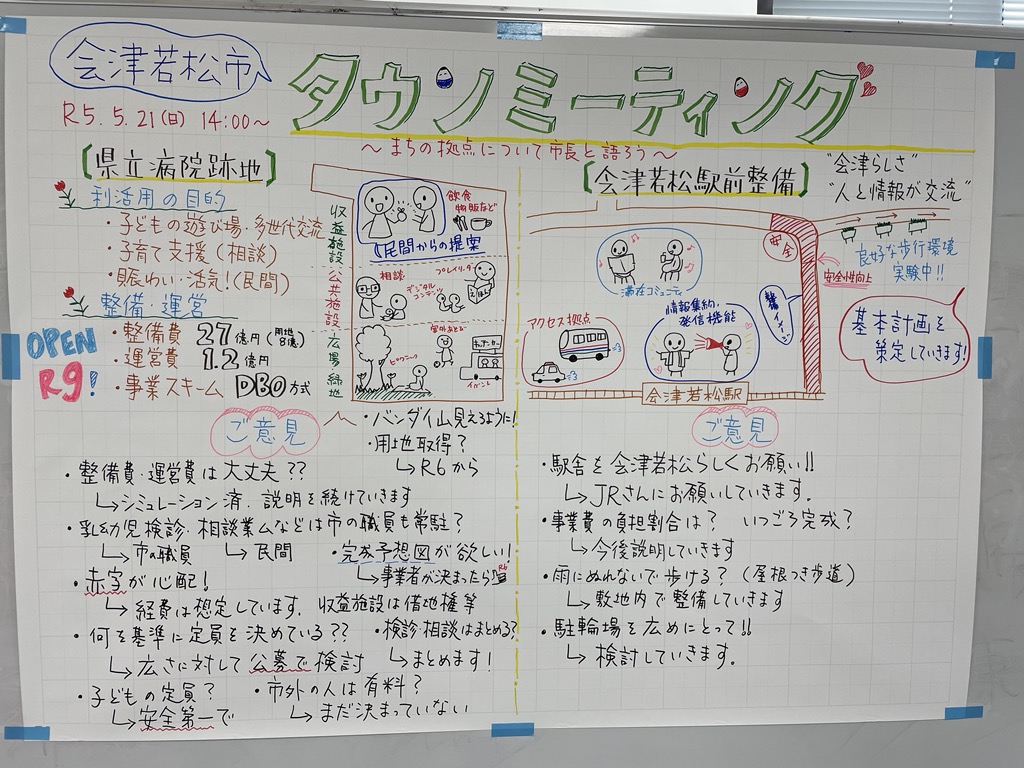 会津若松市
タウンミーティング
R5.5.21(日) 14:00～
～まちの拠点について市長と語ろう～
【県立病院跡地】
利活用の目的
・子どもの遊び場・多世代交流
・子育て支援(相談)
・賑わい・活気!(民間)
整備・運営
OPEN
R9!
・整備費 27億円(用地8億)
・運営費 1.2億円
・事業スキーム DBO方式
収益施設・公共施設・広場・緑地
飲食
物販など
民間からの提案
相談
プレイリーダー
デジタル
コンテンツ
えほん
ピクニック
屋外あそび
キッチンカー
イベント
ご意見
・バンダイ山見えるように!
・用地取得?
→R6から
・整備費・運営費は大丈夫??
→シミュレーション済.説明を続けていきます
・乳幼児検診・相談業ムなどは市の職員も常駐?
→市の職員 →民間
・完成予想図が欲しい!
→事業者が決まったら R6
・赤字が心配!
→経費は想定しています.収益施設は借地権等
・何を基準に定員を決めている??
→広さに対して公募で検討
・検診・相談はまとめる?
→まとめます!
・子どもの定員?
→安全第一で
・市外の人は有料?
→まだ決まっていない
【会津若松駅前整備】
"会津らしさ"
"人と情報が交流"
安全
安全性向上
良好な歩行環境
実験中!!
滞在コミュニティ
情報集約・
発信機能
アクセス拠点
会津若松駅
基本計画を
策定していきます!
ご意見
・駅舎を会津若松らしくお願い!!
→JRさんにお願いしていきます.
・事業費の負担割合は? いつごろ完成?
→今後説明していきます
・雨にぬれないで歩ける?(屋根つき歩道)
→敷地内で整備していきます
・駐輪場を広めにとって!!
→検討していきます.